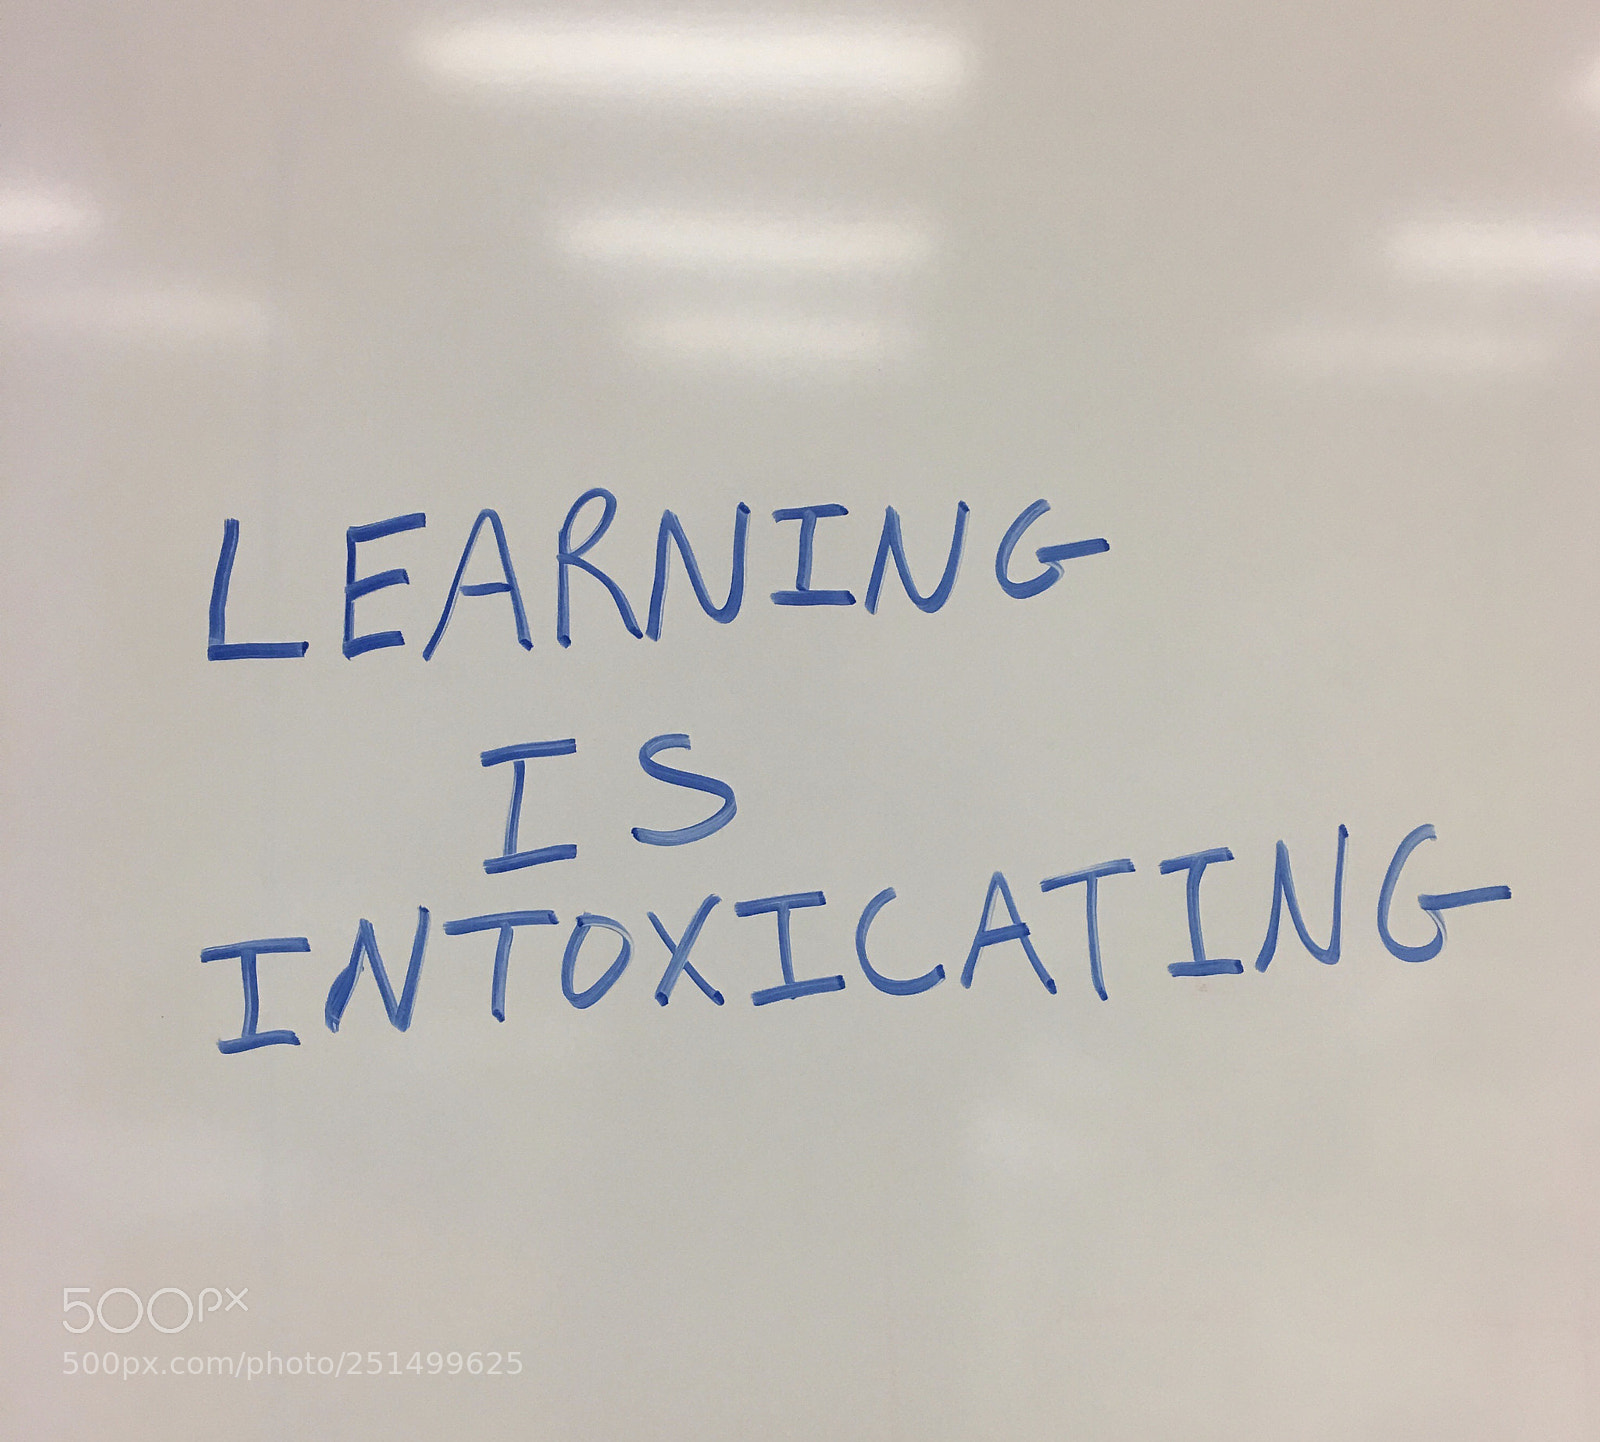 LEARNING
IS
INTOXICATING
500px
500px.com/photo/251499625